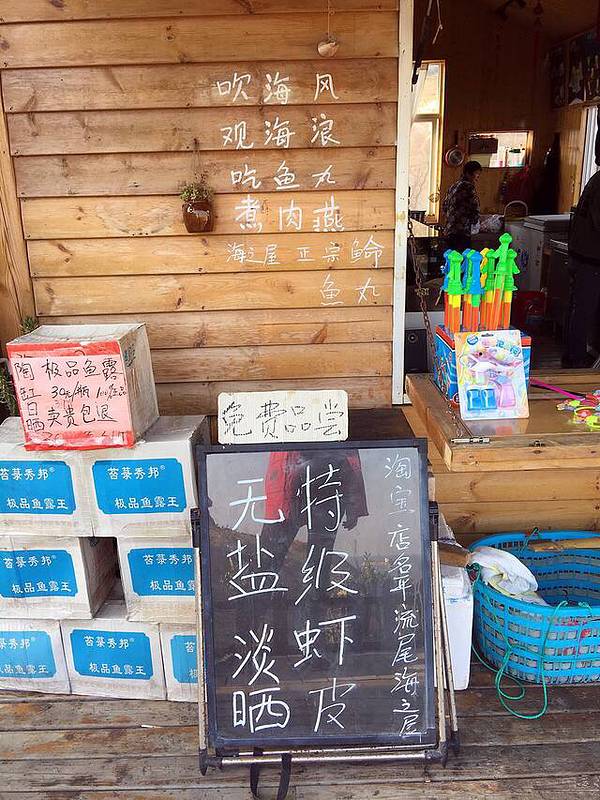 吹海风
观海浪
吃鱼丸
煮肉燕
海之屋 正宗鲶
鱼丸
陶缸日晒
极品鱼露
30元/瓶
卖贵包退
免费品尝
淘宝店名平流尾海之屋
特级虾皮
无盐淡晒
苔菉秀邦®
极品鱼露王
苔菉秀邦®
极品鱼露王
苔菉秀邦®
极品鱼露王
苔菉秀邦®
极品鱼露王
苔菉秀邦®
极品鱼露王
苔菉秀邦®
极品鱼露王